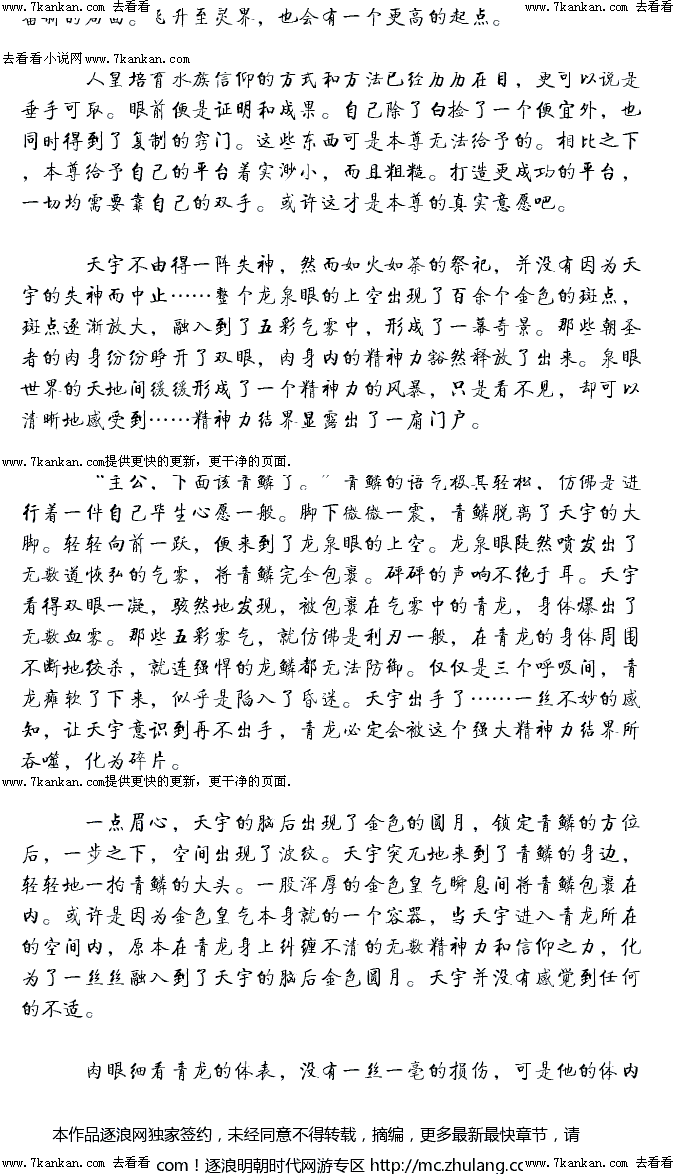 www.7kankan.com 去看看 www.7kankan.com 去看看 www.7kankan.com 去看看
的局面。飞升至灵界，也会有一个更高的起点。
去看看小说网www.7kankan.com
人皇培育水族信仰的方式和方法已经历历在目，更可以说是
垂手可取。眼前便是证明和成果。自己除了白捡了一个便宜外，也
同时得到了复制的窍门。这些东西可是本尊无法给予的。相比之下
，本尊给予自己的平台着实渺小，而且粗糙。打造更成功的平台，
一切均需要靠自己的双手。或许这才是本尊的真实意愿吧。
天宇不由得一阵失神，然而如火如荼的祭祀，并没有因为天
宇的失神而中止……整个龙泉眼的上空出现了百余个金色的斑点，
斑点逐渐放大，融入到了五彩气雾中，形成了一幕奇景。那些朝圣
者的肉身纷纷睁开了双眼，肉身内的精神力豁然释放了出来。泉眼
世界的天地间缓缓形成了一个精神力的风暴，只是看不见，却可以
清晰地感受到……精神力结界显露出了一扇门户。
www.7kankan.com提供更快的更新，更干净的页面.
“主公，下面该青鳞了。”青鳞的语气极其轻松，仿佛是进
行着一件自己毕生心愿一般。脚下微微一震，青鳞脱离了天宇的大
脚。轻轻向前一跃，便来到了龙泉眼的上空。龙泉眼陡然喷发出了
无数道恢弘的气雾，将青鳞完全包裹。砰砰的声响不绝于耳。天宇
看得双眼一凝，骇然地发现，被包裹在气雾中的青龙，身体爆出了
无数血雾。那些五彩雾气，就仿佛是利刃一般，在青龙的身体周围
不断地绞杀，就连强悍的龙鳞都无法防御。仅仅是三个呼吸间，青
龙瘫软了下来，似乎是陷入了昏迷。天宇出手了……一丝不妙的感
知，让天宇意识到再不出手，青龙必定会被这个强大精神力结界所
吞噬，化为碎片。
www.7kankan.com提供更快的更新，更干净的页面.
一点眉心，天宇的脑后出现了金色的圆月，锁定青鳞的方位
后，一步之下，空间出现了波纹。天宇突兀地来到了青鳞的身边，
轻轻地一拍青鳞的大头。一股浑厚的金色皇气瞬息间将青鳞包裹在
内。或许是因为金色皇气本身就的一个容器，当天宇进入青龙所在
的空间内，原本在青龙身上纠缠不清的无数精神力和信仰之力，化
为了一丝丝融入到了天宇的脑后金色圆月。天宇并没有感觉到任何
的不适。
肉眼细看青龙的体表，没有一丝一毫的损伤，可是他的体内
本作品逐浪网独家签约，未经同意不得转载，摘编，更多最新最快章节，请
www.7kankan.com 去看看 com！逐浪明朝时代网游专区 http://mc.zhulang.co 去看看